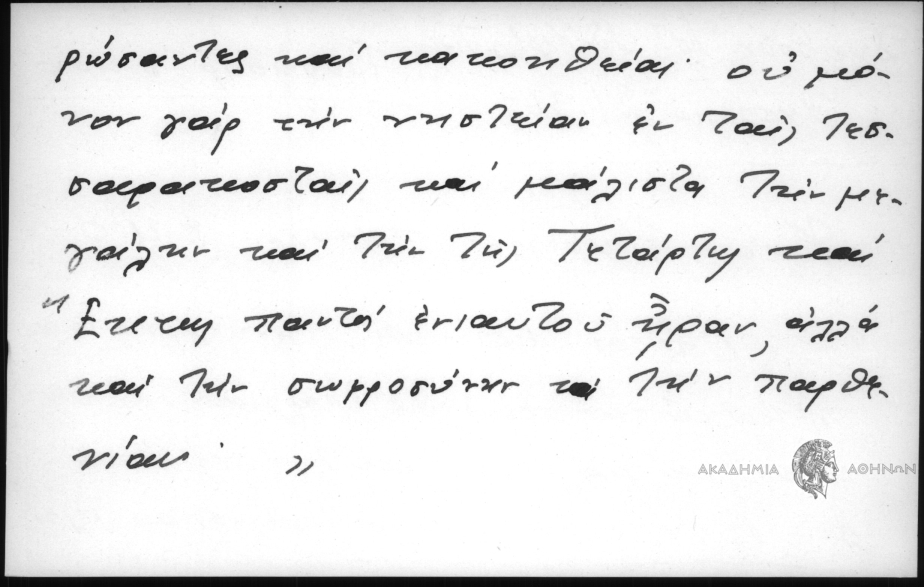 ρώσαντες καί κακοηθείαι· οὐ μό-
νον γάρ τήν νηστείαν ἐν ταῖς Τεσ-
σαρακοσταῖς καί μάλιστα τήν με-
γάλην καί τήν τῆς Τετάρτης καί
Ἕκτης παντός ἐνιαυτοῦ ᾖραν, ἀλλά
καί τήν σωφροσύνην καί τήν παρθε-
νίαν. »
ΑΚΑΔΗΜΙΑ ΑΘΗΝΩΝ